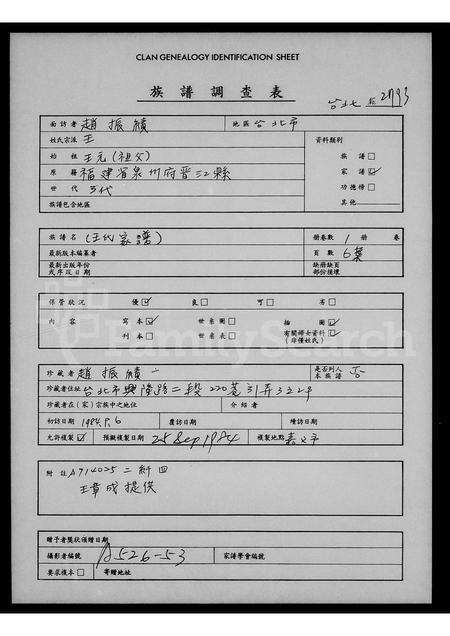 CLAN GENEALOGY IDENTIFICATION SHEET
族譜調查表
台北 2793
面訪者 趙振績 地區 台北市
姓氏宗派 王 資料類別
始祖 王元(祖父) 族譜□
原籍 福建省泉州府晋江縣 家譜☑
世代 5代 功德榜□
族譜包含地區 其他
族譜名 (王氏家譜) 册卷數 1 册 卷
最新版本編纂者 頁數 6葉
最新出版年份或序設日期 缺册缺頁部份損壞
保管狀況 優☑ 良□ 可□ 劣□
內容 寫本☑ 世系圖□ 插圖☑
刊本□ 世系表□ 有關婦女資料☑(非僅姓氏)
珍藏者 趙振績 是否列入本族譜 否
珍藏者住址 台北市興隆路二段220巷31弄3之2号
珍藏者在(家)宗族中之地位 介紹者
初訪日期 1984. 6 覆訪日期 續訪日期
允許複製☑ 預擬複製日期 25 Sep 1984 複製地點
附註 A714025
王章成提供
贈予者獎狀頒贈日期
攝影者編號 A526-53 家譜學會編號
要求複本□ 寄贈地址
FamilySearch